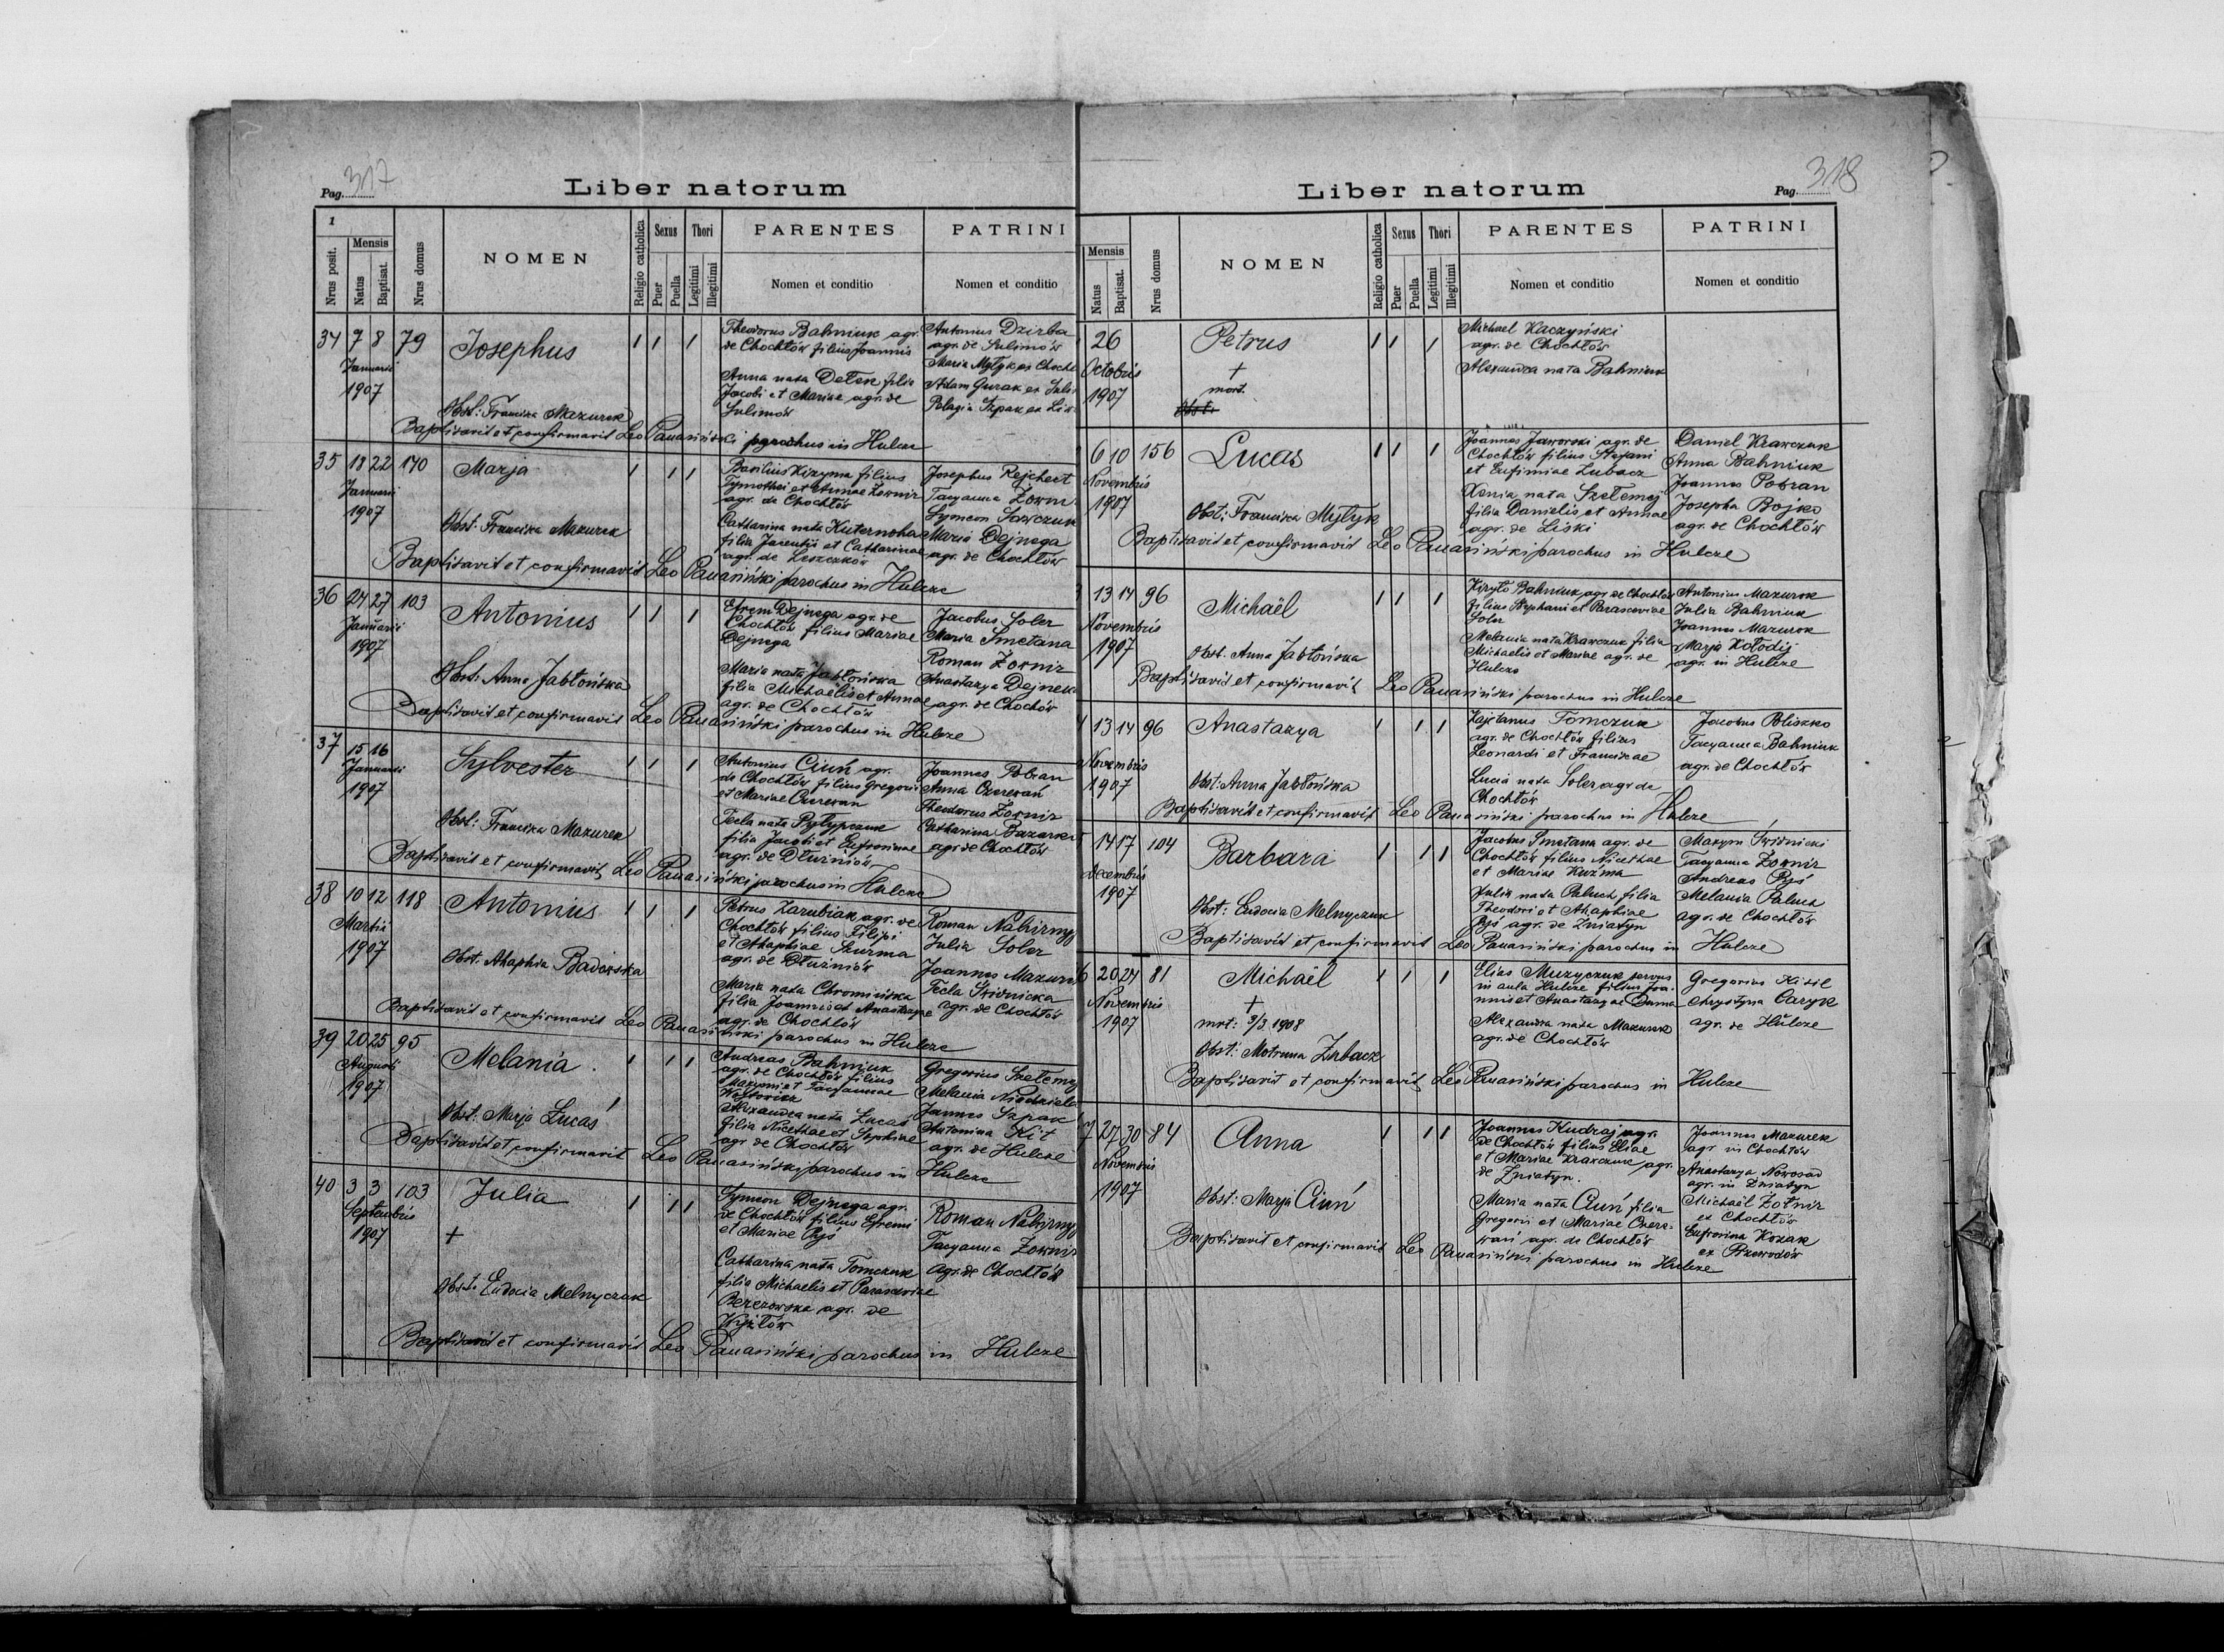 Pag. 317
Liber natorum
1
Nrus posit.
Mensis
Natus
Baptisat.
Nrus domus
NOMEN
Religio catholica
Sexus
Puer
Puella
Thori
Legitimi
Illegitimi
PARENTES
Nomen et conditio
PATRINI
Nomen et conditio
34 7 8 79 Josephus 1 1 1
Januarii
1907
Theodorus Bahniuk agr.
de Chochłów filius Joannis
Anna nata Detek filia
Jacobi et Mariae agr. de
Sulimów
Antonius Dzirba
agr. de Sulimów
Maria Mytyk ex Chochł
Adam Gurak ex
Pelagia Szpak ex
Obst: Franciska Mazurek
Baptisavit et confirmavit Leo Panasiński parochus in Hulcze
35 18 22 170 Marja 1 1 1
Januarii
1907
Basilius Kizyma filius
Tymothei et Annae Żornir
agr. de Chochłów
Catharina nata Kuternoha
filia Jarentii et Catharinae
agr. de Leszczków
Josephus Rejchert
Tacyanna Żorni
Symeon Sawczuk
Maria Dejnega
agr. de Chochłów
Obst: Franciska Mazurek
Baptisavit et confirmavit Leo Panasiński parochus in Hulcze
36 24 27 103 Antonius 1 1 1
Januarii
1907
Efrem Dejnega agr. de
Chochłów filius Mariae
Dejnega
Maria nata Jabłońska
filia Michaelis et Annae
agr. de Chochłów
Jacobus Soler
Maria Smetana
Roman Żornir
Anastazya Dejneka
agr. de Chochłów
Obst: Anna Jabłońska
Baptisavit et confirmavit Leo Panasiński parochus in Hulcze
37 15 16 Sylvester 1 1 1
Januarii
1907
Antonius Ciuń agr.
de Chochłów filius Gregorii
et Mariae Ozerewan
Tecla nata Pytypczuk
filia Jacobi et Eufrosinae
agr. de Dłużniów
Joannes Pobran
Anna Ozerewań
Theodorus Żornir
Catharina
agr de Chochłów
Obst: Franciska Mazurek
Baptisavit et confirmavit Leo Panasiński parochus in Hulcze
38 10 12 118 Antonius 1 1 1
Martii
1907
Petrus Zarubiak agr. de
Chochłów filius Filipi
et Ahaphiae Szurma
agr. de Dłużniów
Maria nata Chromińska
filia Joannis et Anastazyae
agr. de Chochłów
Roman Nahirny
Julia Soler
Joannes Mazurek
Tecla Świdnicka
agr. de Chochłów
Obst. Ahaphia Badowska
Baptisavit et confirmavit Leo Panasiński parochus in Hulcze
39 20 25 95 Melania 1 1 1
Augusti
1907
Andreas Bahniuk
agr. de Chochłów filius
Maxymi et Tacyannae
Alexandra nata Lucaś
filia Nicethae et Sophiae
agr de Chochłów
Gregorius Szełemej
Melania
Joannes Szpak
Antonina Kit
agr. de Hulcze
Obst: Marja Lucaś
Baptisavit et confirmavit Leo Panasiński parochus in Hulcze
40 3 3 103 Julia 1 1 1
Septembris
1907 +
Symeon Dejnega agr.
de Chochłów filius Efremi
et Mariae Ryś
Catharina nata Tomczuk
filia Michaelis et Parasceviae
Berezowska agr. de
Roman Nahirny
Tacyanna Żornir
agr. de Chochłów
Obst: Eudocia Melnyczuk
Baptisavit et confirmavit Leo Panasiński parochus in Hulcze
Liber natorum
Pag. 318
Mensis
Natus
Baptisat.
Nrus domus
NOMEN
Religio catholica
Sexus
Puer
Puella
Thori
Legitimi
Illegitimi
PARENTES
Nomen et conditio
PATRINI
Nomen et conditio
26 Petrus 1 1 1
Octobris
1907
+
mort.
Obst:
Michael Kaczyński
agr. de Chochłów
Alexandra nata Bahniuk
6 10 156 Lucas 1 1 1
Novembris
1907
Joannes Jaworski agr. de
Chochłów filius Stefani
et Eufimiae Lubacz
Xenia nata Szełemej
filia Danielis et Annae
agr. de Liski
Daniel Krawczuk
Anna Bahniuk
Joannes Pobran
Josepha Bojko
agr. de Chochłów
Obst: Franciska Mytyk
Baptisavit et confirmavit Leo Panasiński parochus in Hulcze
13 14 96 Michaël 1 1 1
Novembris
1907
Kiryło Bahniuk agr. de Chochłów
filius Stephani et Parasceviae
Soler
Melania nata Krawczuk filia
Michaelis et Mariae agr. de
Hulcze
Antonius Mazurok
Julia Bahniuk
Joannes Mazurok
Marja Kołodij
agr. in Hulcze
Obst. Anna Jabłońska
Baptisavit et confirmavit Leo Panasiński parochus in Hulcze
13 14 96 Anastazya 1 1 1
Novembris
1907
Kajetanus Tomczuk
agr. de Chochłów filius
Leonardi et Franciscae
Lucia nata Soler agr de
Chochłów
Jacobus Poliszko
Tacyanna Bahniuk
agr. de Chochłów
Obst: Anna Jabłońska
Baptisavit et confirmavit Leo Panasiński parochus in Hulcze
14 17 104 Barbara 1 1 1
Decembris
1907
Jacobus Smetana agr. de
Chochłów filius Nicethae
et Mariae Kuźma
Julia nata Paluch filia
Theodori et Ahaphiae
Ryś agr. de Żniatyn
Maxym Świdnicki
Tacyanna Żornir
Andreas Ryś
Melania Paluch
agr. de Chochłów
Obst: Eudocia Melnyczuk
Baptisavit et confirmavit Leo Panasiński parochus in Hulcze
6 20 24 81 Michaël 1 1 1
Novembris
1907
+
mort: 3/3 1908
Elias Muzyczuk servus
in aula Hulcze filius Joa-
nnis et Anastazyae Duma
Alexandra nata Mazurek
agr. de Chochłów
Gregorius Kisil
Chrystyna Caryk
agr. de Hulcze
Obst: Motruna Zubacz
Baptisavit et confirmavit Leo Panasiński parochus in Hulcze
7 27 30 84 Anna 1 1 1
Novembris
1907
Joannes Kudraj agr.
de Chochłów filius Eliae
et Mariae Krawczuk agr.
de Żniatyn.
Maria nata Ciuń filia
Gregorii et Mariae Ozere-
wań agr. de Chochłów
Joannes Mazurek
agr in Chochłów
Anastazya Nowosad
agr. in Żniatyn
Michaël Żołnir
ex Chochłów
Eufrosina Kozak
ex Przewodów
Obst: Marja Ciuń
Baptisavit et confirmavit Leo Panasiński parochus in Hulcze